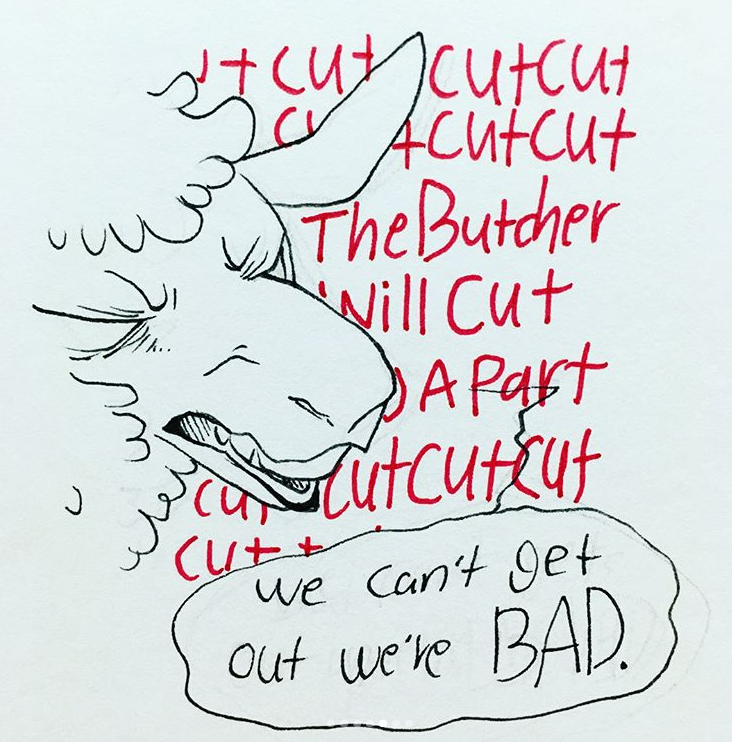 cut cutcut
cutcutcut
The Butcher
Will Cut
A Part
cut cutcutcut
cut
we can't get
out we're BAD.